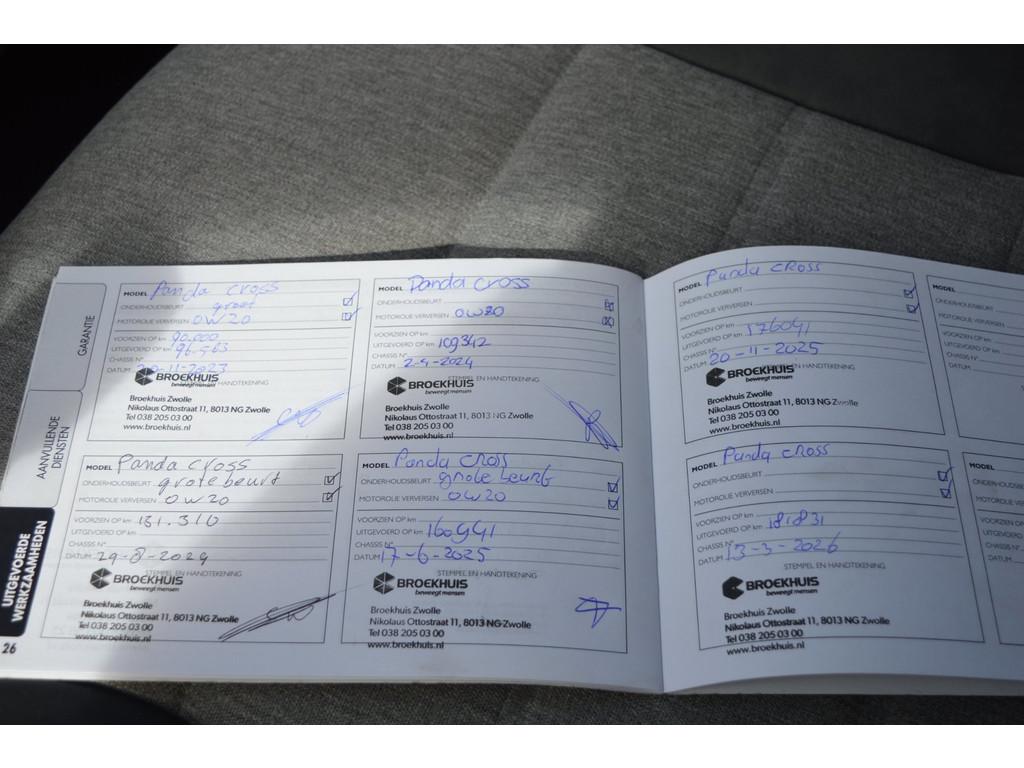 GARANTIE
AANVULLENDE
DIENSTEN
UITGEVOERDE
WERKZAAMHEDEN
26
MODEL Panda cross
ONDERHOUDSBEURT groot
MOTOROLIE VERVERSEN 0W20
VOORZIEN OP km 90.000
UITGEVOERD OP km 96.563
CHASSIS N°
DATUM 20-11-2023
BROEKHUIS
beweegt mensen
EN HANDTEKENING
Broekhuis Zwolle
Nikolaus Ottostraat 11, 8013 NG Zwolle
Tel 038 205 03 00
www.broekhuis.nl
MODEL Panda cross
ONDERHOUDSBEURT
MOTOROLIE VERVERSEN 0W20
VOORZIEN OP km
UITGEVOERD OP km 109342
CHASSIS N°
DATUM 2-4-2024
STEMPEL EN HANDTEKENING
BROEKHUIS
beweegt mensen
Broekhuis Zwolle
Nikolaus Ottostraat 11, 8013 NG Zwolle
Tel 038 205 03 00
www.broekhuis.nl
MODEL Panda cross
ONDERHOUDSBEURT grote beurt
MOTOROLIE VERVERSEN 0W20
VOORZIEN OP km 131.310
UITGEVOERD OP km
CHASSIS N°
DATUM 29-8-2024
STEMPEL EN HANDTEKENING
BROEKHUIS
beweegt mensen
Broekhuis Zwolle
Nikolaus Ottostraat 11, 8013 NG Zwolle
Tel 038 205 03 00
www.broekhuis.nl
MODEL Panda cross
ONDERHOUDSBEURT grote beurt
MOTOROLIE VERVERSEN 0W20
VOORZIEN OP km
UITGEVOERD OP km 160941
CHASSIS N°
DATUM 17-6-2025
STEMPEL EN HANDTEKENING
BROEKHUIS
beweegt mensen
Broekhuis Zwolle
Nikolaus Ottostraat 11, 8013 NG Zwolle
Tel 038 205 03 00
www.broekhuis.nl
MODEL Panda cross
ONDERHOUDSBEURT
MOTOROLIE VERVERSEN
VOORZIEN OP km
UITGEVOERD OP km 176041
CHASSIS N°
DATUM 20-11-2025
STEMPEL EN HANDTEKENING
BROEKHUIS
beweegt mensen
Broekhuis Zwolle
Nikolaus Ottostraat 11, 8013 NG Zwolle
Tel 038 205 03 00
www.broekhuis.nl
MODEL Panda cross
ONDERHOUDSBEURT
MOTOROLIE VERVERSEN
VOORZIEN OP km
UITGEVOERD OP km 181831
CHASSIS N°
DATUM 13-3-2026
STEMPEL EN HANDTEKENING
BROEKHUIS
beweegt mensen
Broekhuis Zwolle
Nikolaus Ottostraat 11, 8013 NG Zwolle
Tel 038 205 03 00
www.broekhuis.nl
MODEL
MODEL